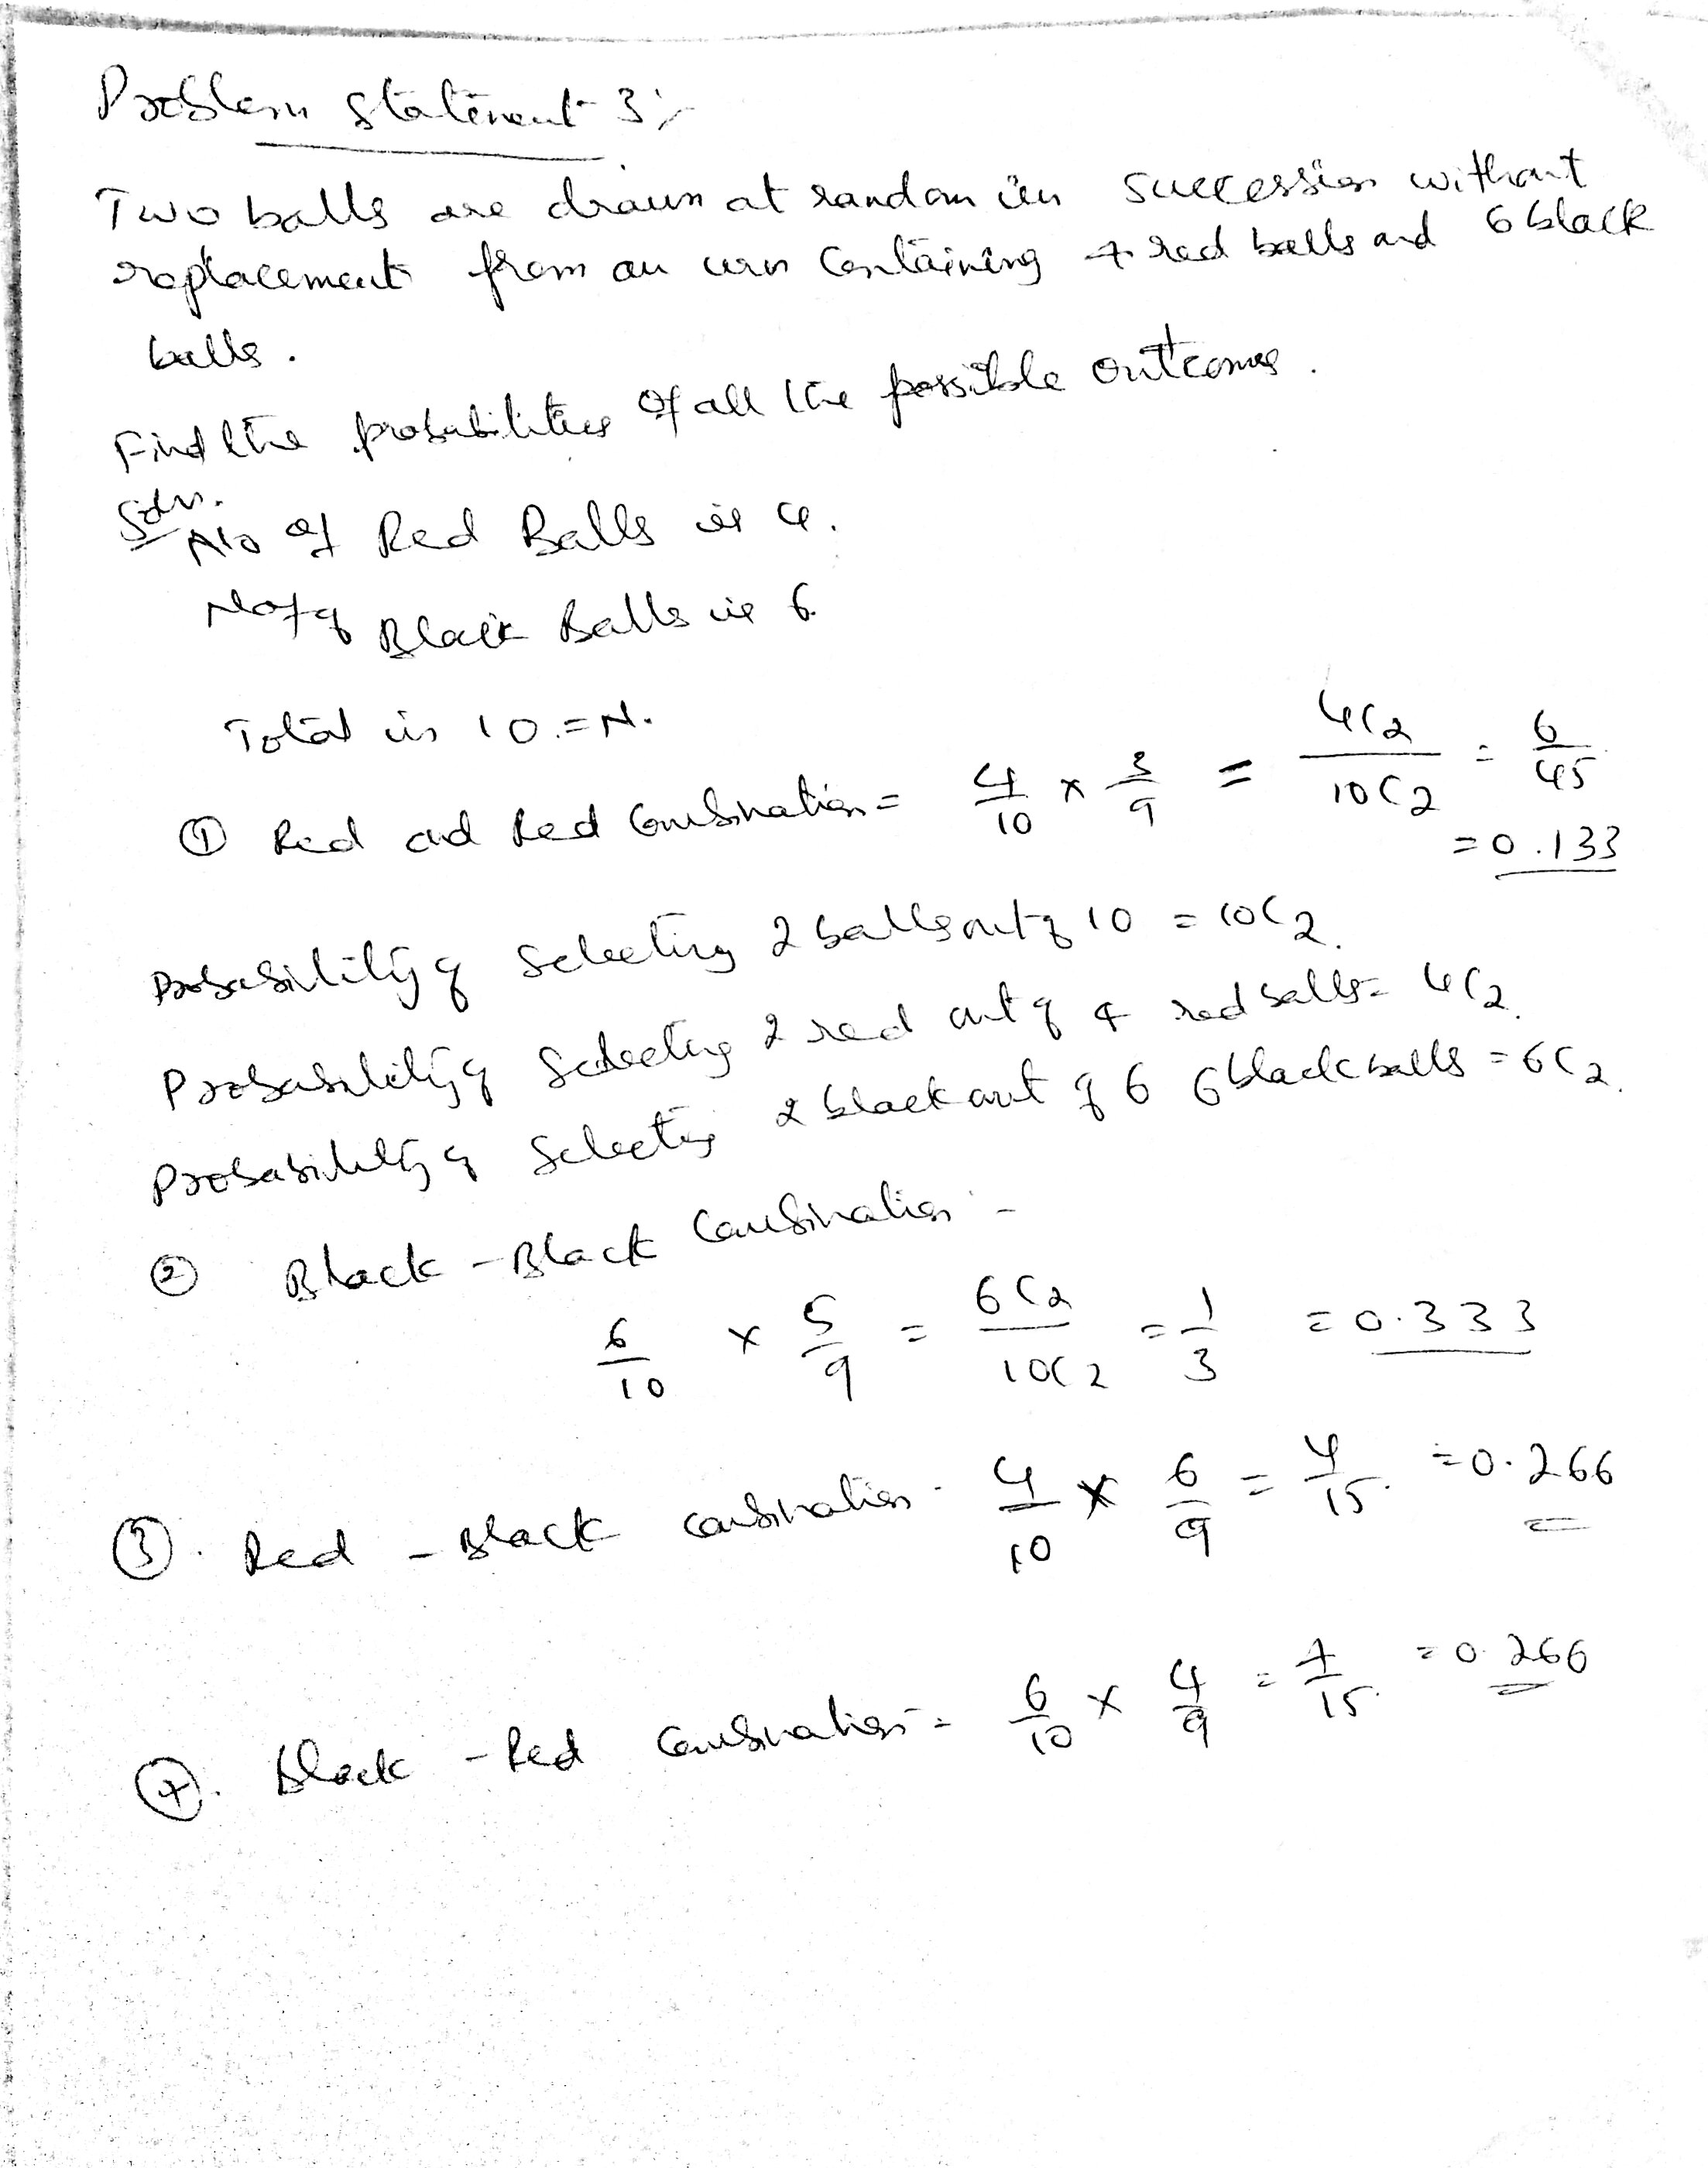 Problem Statement 3:-
Two balls are drawn at random in succession without
replacement from an urn containing 4 red balls and 6 black
balls.
Find the probabilities of all the possible outcomes.
Soln.
No of Red Balls is 4.
No of Black Balls is 6.
Total is 10 = N.
① Red and Red Combination = 4/10 × 3/9 = 4C2/10C2 = 6/45
= 0.133
Probability of Selecting 2 balls out of 10 = 10C2.
Probability of Selecting 2 red out of 4 red balls = 4C2.
Probability of Selecting 2 black out of 6 6 black balls = 6C2.
② Black - Black Combination -
6/10 × 5/9 = 6C2/10C2 = 1/3 = 0.333
③. Red - Black combination - 4/10 × 6/9 = 4/15. = 0.266
④. Black - Red Combination = 6/10 × 4/9 = 4/15. = 0.266